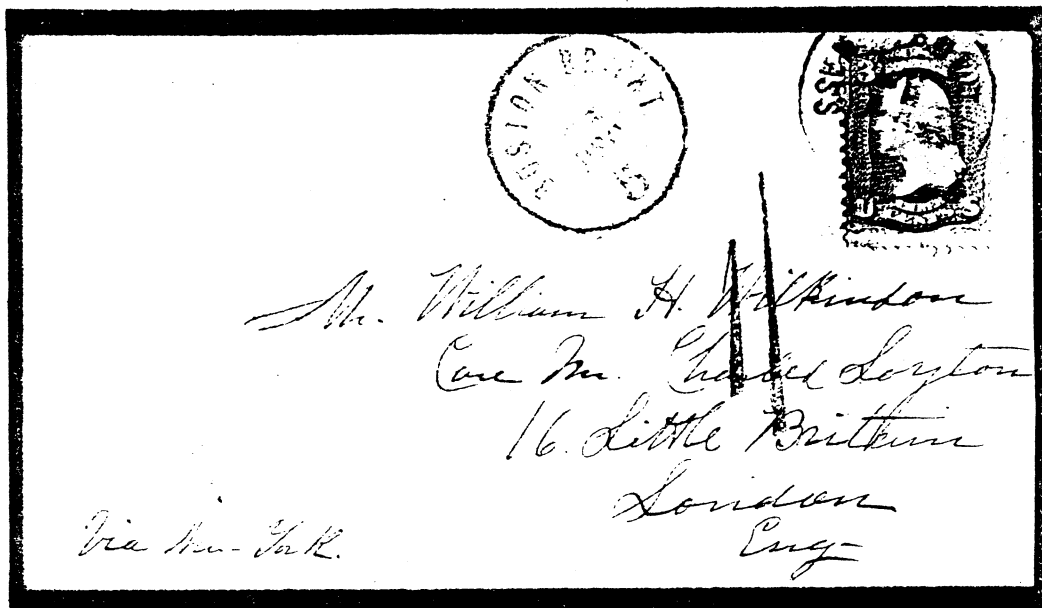 BOSTON BR. PKT
Mr. William H. Wilkinson
Care Mr. Charles
16. Little Britain
London
Eng
Via New-York.